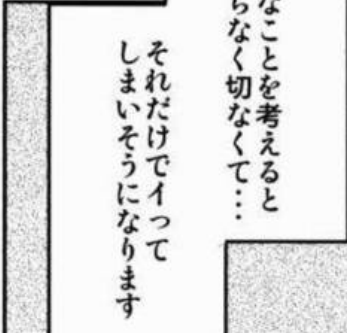 なことを考えると
らなく切なくて・・・
それだけでイって
しまいそうになります